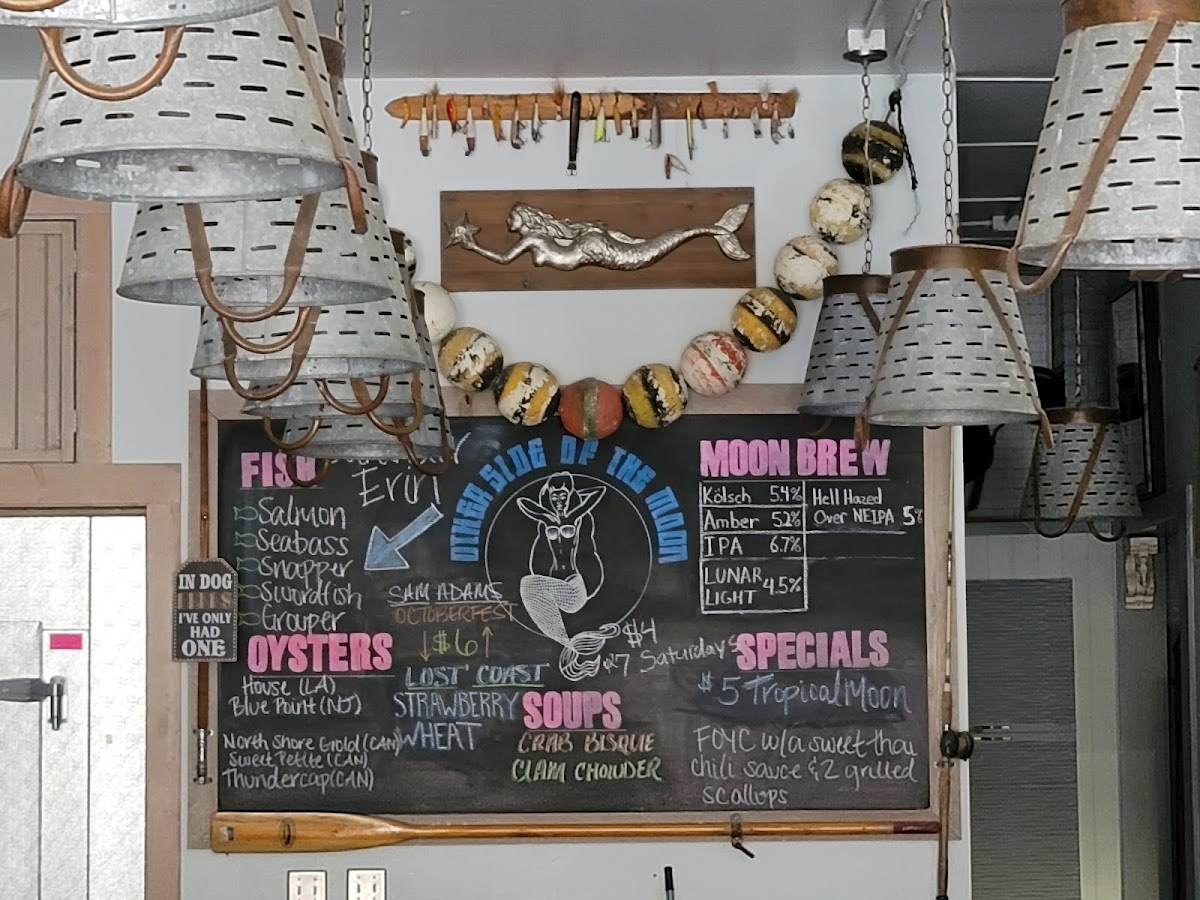 FISH
Erin
Salmon
Seabass
Snapper
Swordfish
Grouper
OYSTERS
House (LA)
Blue Point (NJ)
North Shore Gold (CAN)
Sweet Petite (CAN)
Thundercap (CAN)
IN DOG
BEERS
I'VE ONLY
HAD
ONE
OTHER SIDE OF THE MOON
SAM ADAMS
OCTOBERFEST
$6
LOST COAST
STRAWBERRY
WHEAT
$4
$7 Saturdays
SOUPS
CRAB BISQUE
CLAM CHOWDER
MOON BREW
Kölsch 5.4%
Amber 5.2%
IPA 6.7%
LUNAR
LIGHT 4.5%
Hell Hazed
Over NEIPA 5%
SPECIALS
$5 Tropical Moon
FOYC w/a sweet thai
chili sauce & 2 grilled
scallops